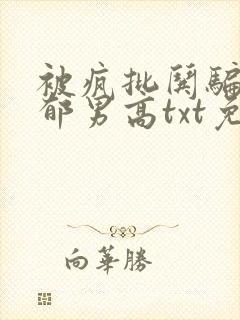 被疯批関騙
郁男高txt免
向華勝